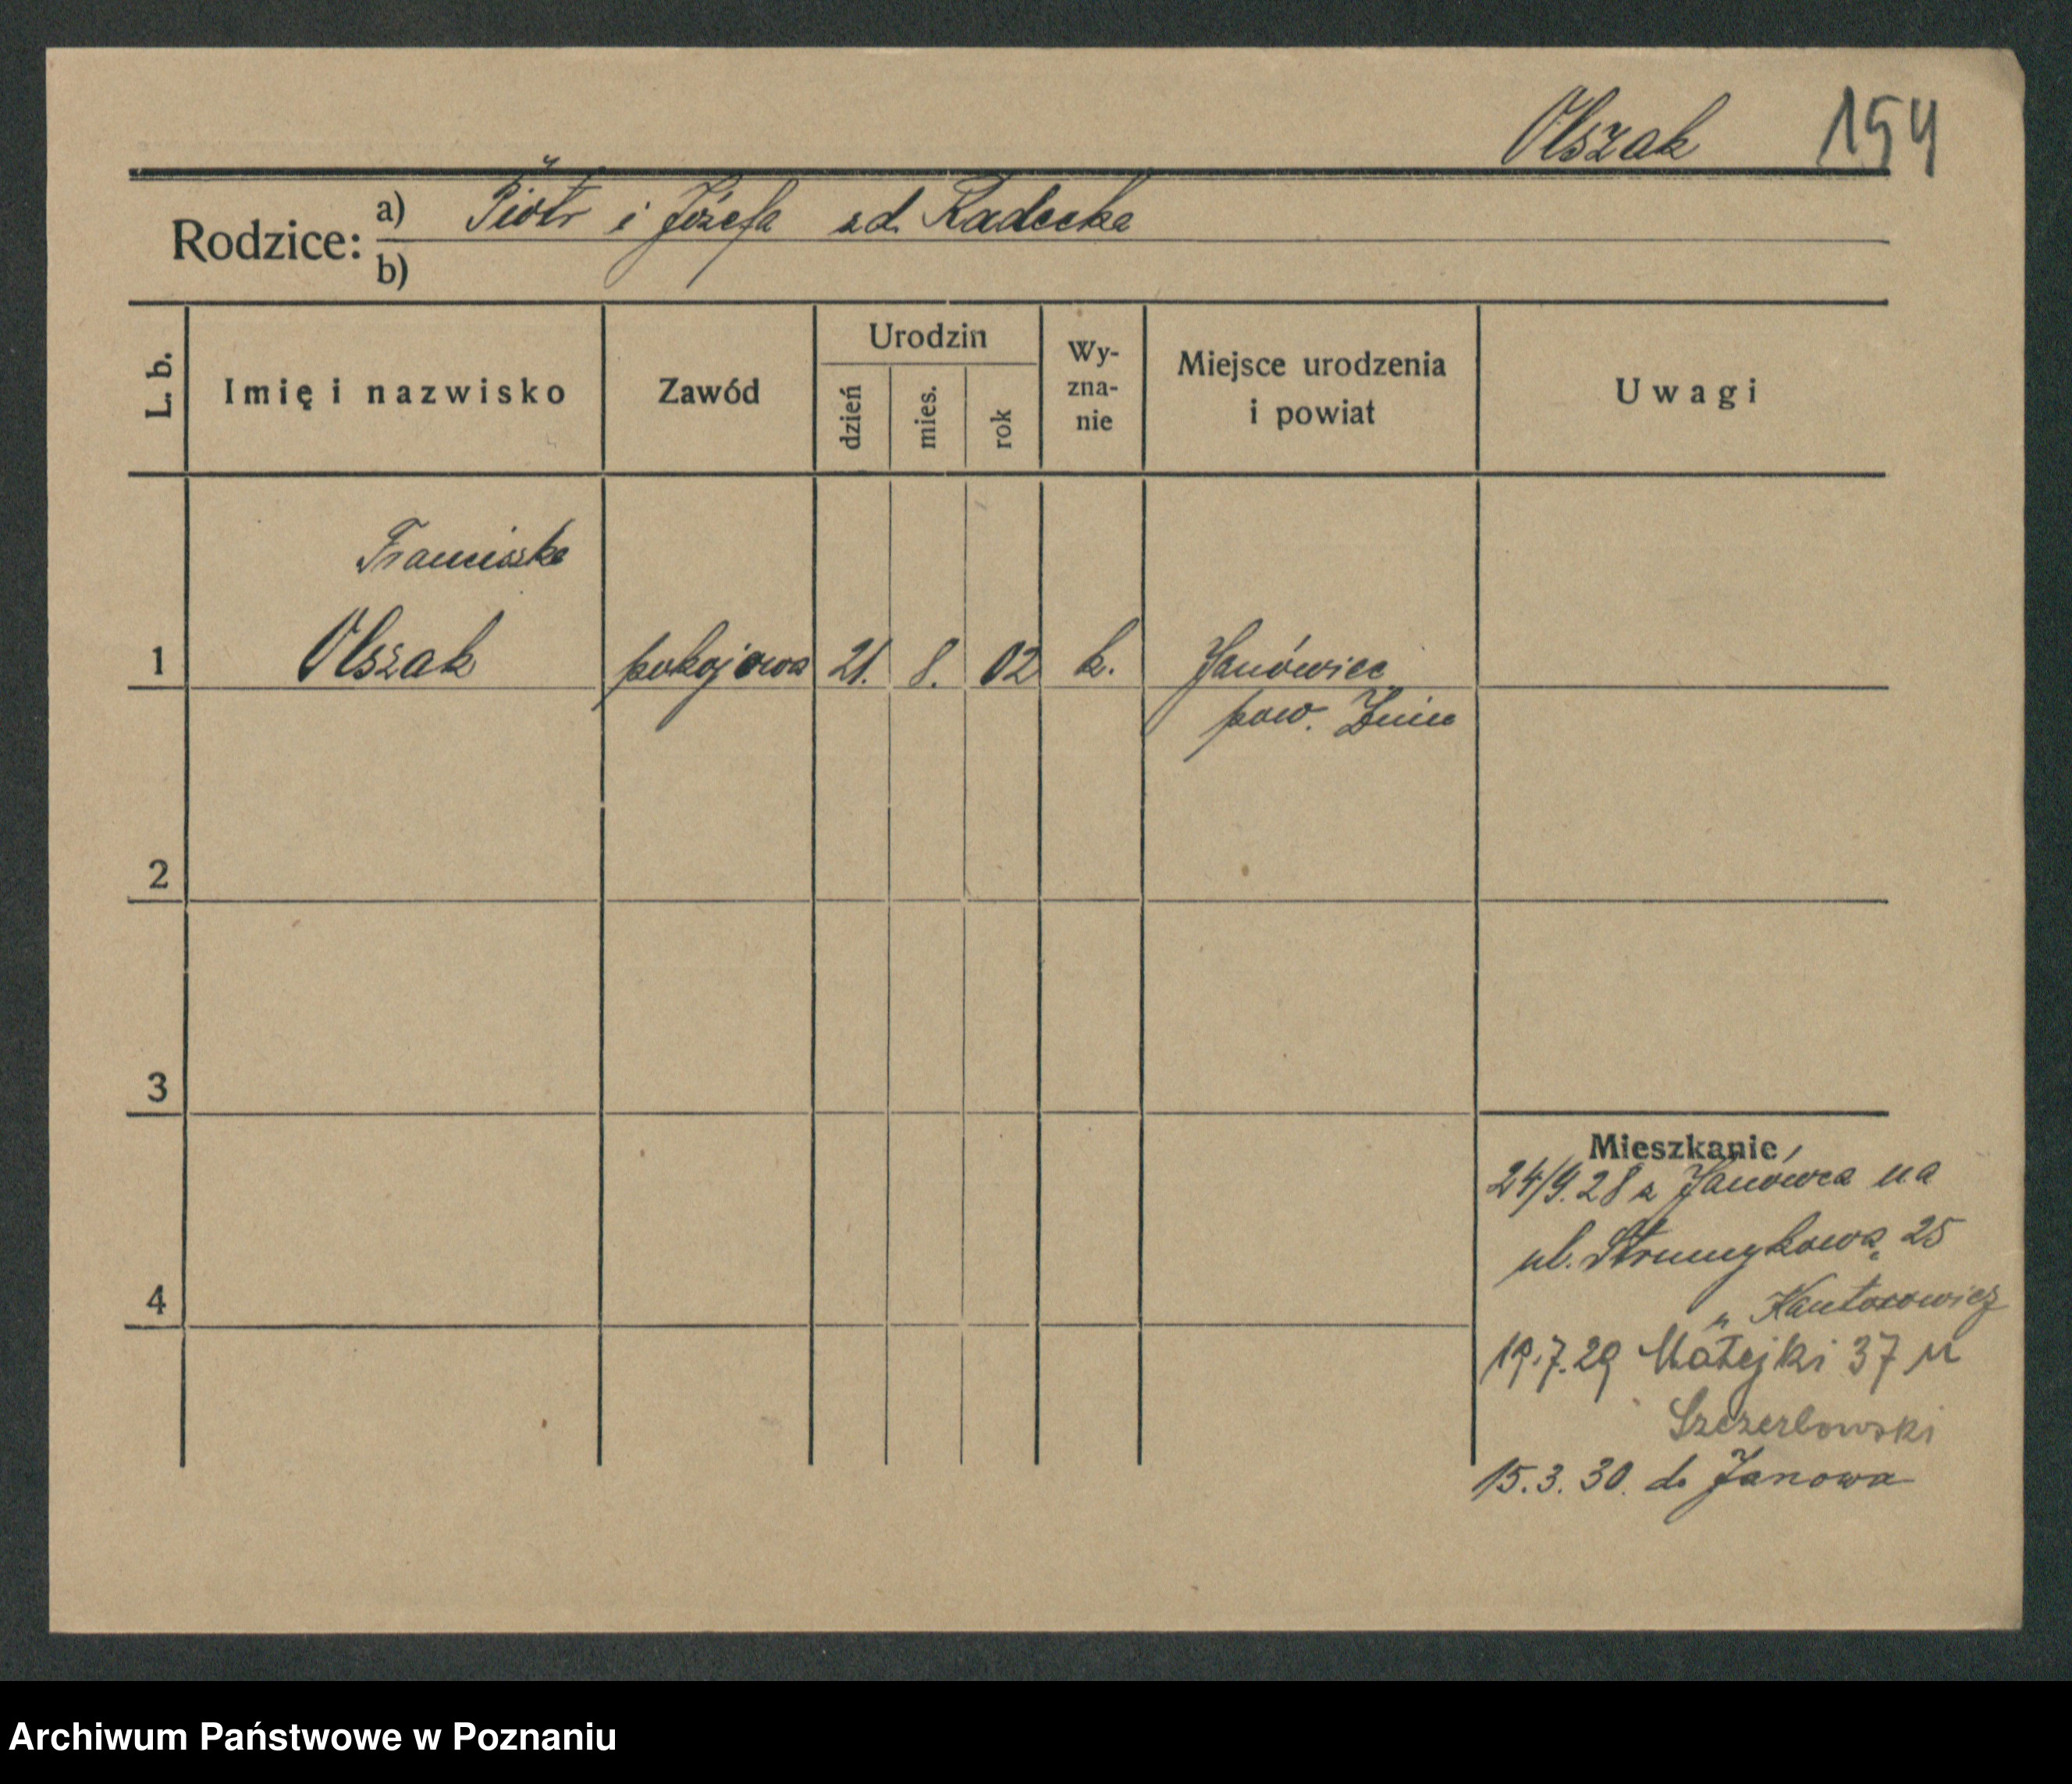 Olszak 154
Rodzice: a) Piotr i Józefa zd. Radecka
b)
L. b. Imię i nazwisko Zawód Urodzin dzień mies. rok Wyznanie Miejsce urodzenia i powiat Uwagi
Franciszka
1 Olszak pokojowa 21. 8. 02 k. Janówiec
pow. Żnin
2
3
Mieszkanie
24/9.28 z Janówca na
ul. Strumykowa 25
4
" Kantorowicz
19.7.29 Matejki 37 u
Szczerbowski
15.3.30. do Janowa
Archiwum Państwowe w Poznaniu